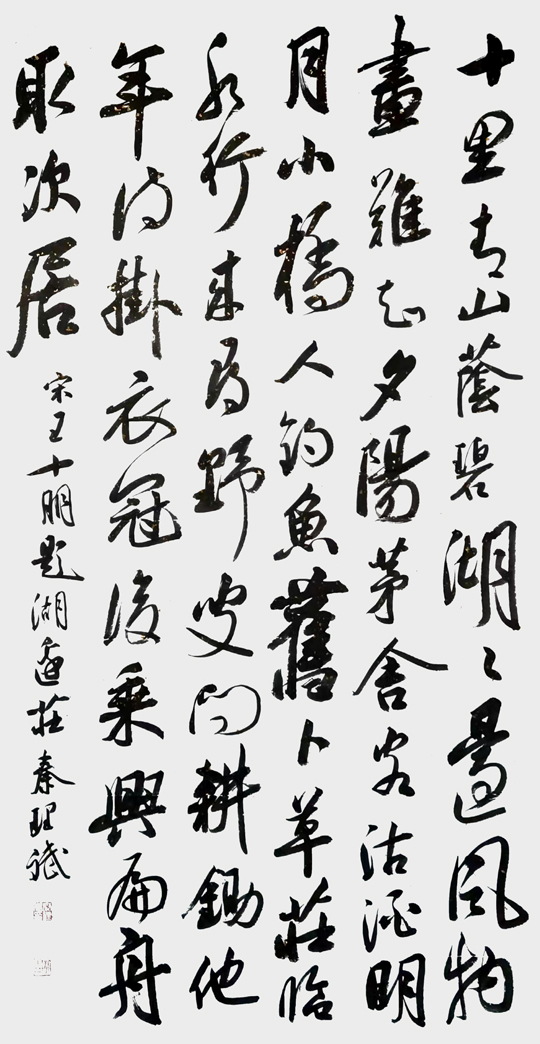 十里青山蔭碧湖〻邊風物
畫難如夕陽茅舍客沽酒明
月小橋人釣魚舊卜草莊臨
水竹來尋野叟問耕鋤他
年待掛衣冠後乘興扁舟
取次居
宋王十朋題湖邊莊秦理斌